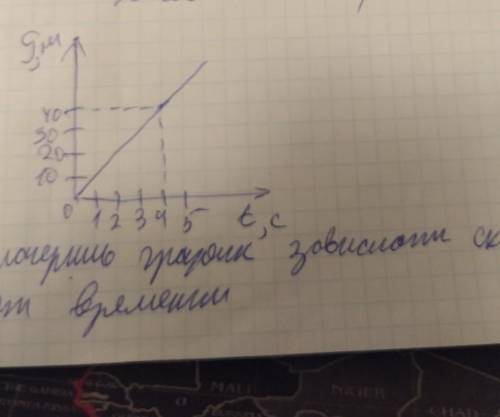 S, м
40
30
20
10
0 1 2 3 4 5 t, с
начертить график зависимости ск
от времени
MALI
NIGER